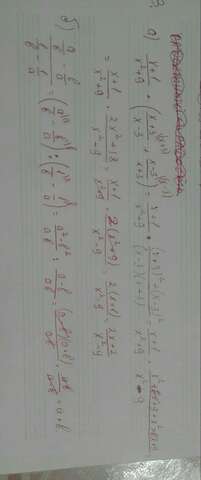 а) (x+1)/(x²+9) · ((x+3)/(x-3) + (x-3)/(x+3)) = (x+1)/(x²+9) · ((x+3)²+(x-3)²)/((x-3)(x+3)) = (x+1)/(x²+9) · (x²+6x+9+x²-6x+9)/(x²-9)
= (x+1)/(x²+9) · (2x²+18)/(x²-9) = (x+1)/(x²+9) · 2(x²+9)/(x²-9) = 2(x+1)/(x²-9) = (2x+2)/(x²-9)
б) (a/b - b/a)/(1/b - 1/a) = (a/b - b/a) : (1/b - 1/a) = (a²-b²)/(ab) : (a-b)/(ab) = ((a-b)(a+b))/(ab) · ab/(a-b) = a+b